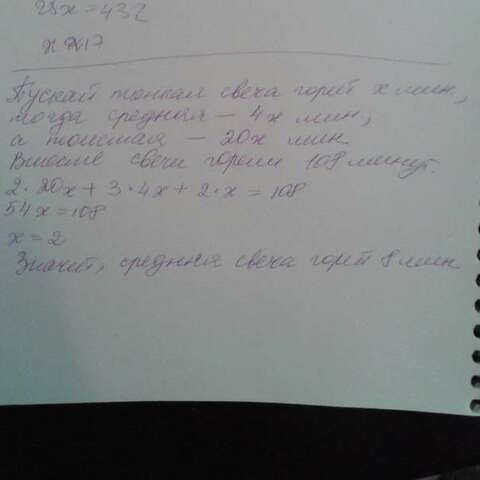 25x = 432
x ≈ 17
Пускай тонкая свеча горит x мин,
тогда средняя — 4x мин,
а толстая — 20x мин.
Вместе свечи горели 108 минут.
2·20x + 3·4x + 2·x = 108
54x = 108
x = 2
Значит, средняя свеча горит 8 мин